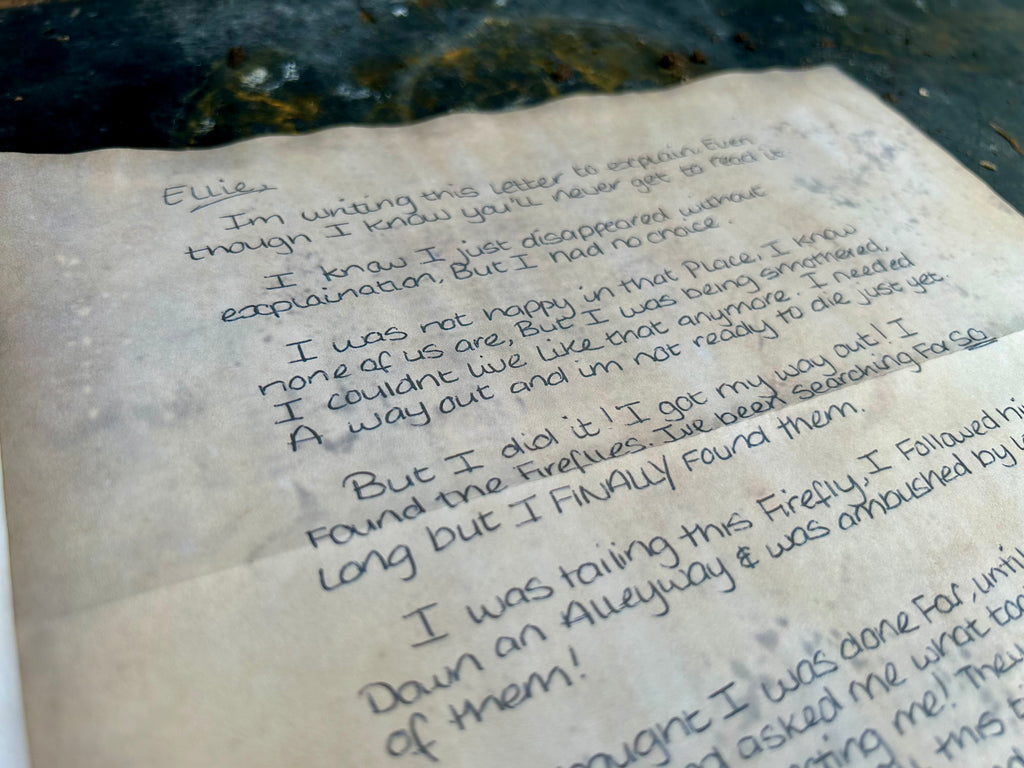 Ellie,
Im writing this letter to explain. Even
though I know you'll never get to read it
I know I just disappeared without
explaination, But I had no choice.
I was not happy in that Place, I know
none of us are, But I was being smothered,
I couldnt live like that anymore. I needed
A way out and im not ready to die just yet.
But I did it! I got my way out! I
Found the Fireflies. I've been searching For so
Long but I FINALLY Found them.
I was tailing this Firefly, I Followed
Down an Alleyway & was ambushed by
of them!
I was done For, until
asked me what
me! They
this